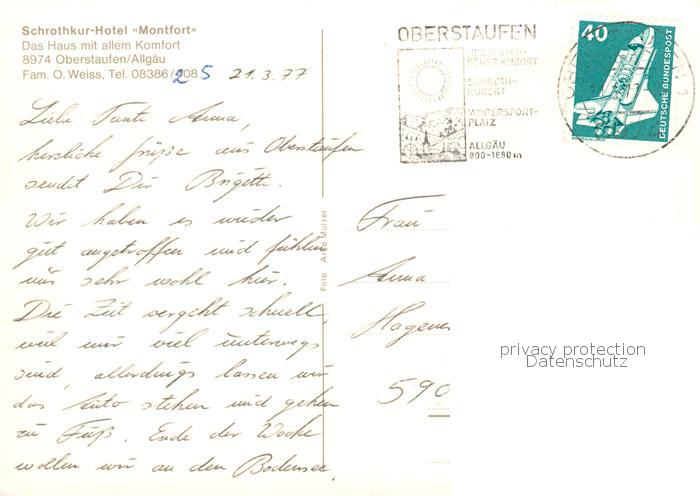 Schrothkur-Hotel «Montfort»
Das Haus mit allem Komfort
8974 Oberstaufen/Allgäu
Fam. O. Weiss, Tel. 08386/
21.3.77
OBERSTAUFEN
SCHER KURORT
SCHROTH-
KURORT
WINTERSPORT-
PLATZ
ALLGÄU
800-1880 m
40
DEUTSCHE BUNDESPOST
Liebe Tante Anna,
herzliche Grüße aus Oberstaufen
sendet Dir Brigitte.
Wir haben es wieder
gut angetroffen und fühlen
uns sehr wohl hier.
Die Zeit vergeht schnell,
weil wir viel unterwegs
sind, allerdings lassen wir
das Auto stehen und gehen
zu Fuß. Ende der Woche
wollen wir an den Bodensee.
Foto Arno Mulzer
Frau
Anna
Hagener
590
privacy protection
Datenschutz